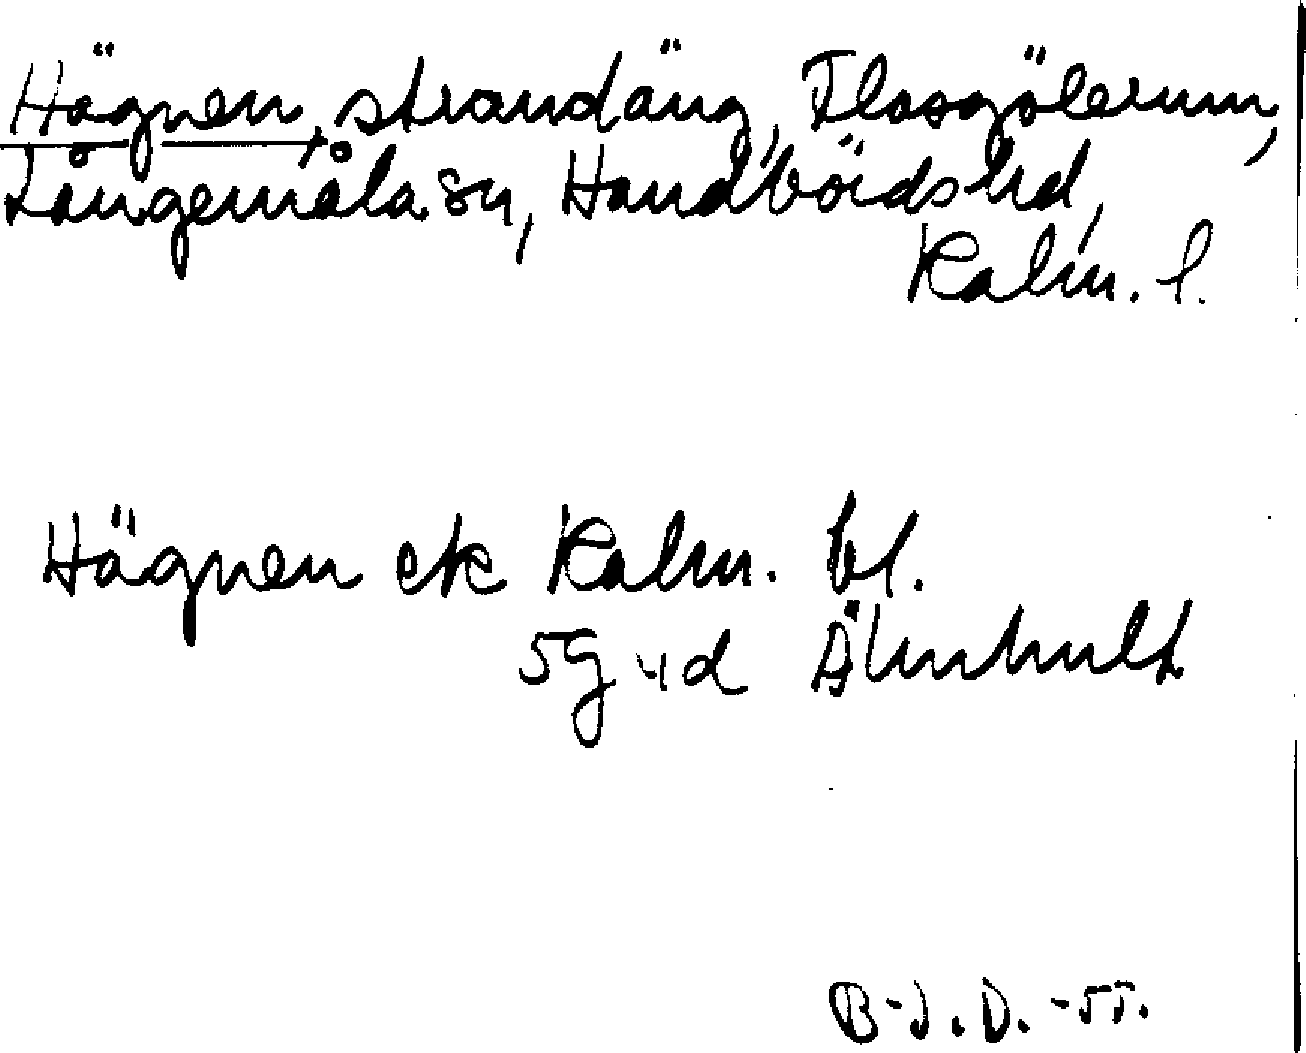 Hägnen, strandäng, Flasgölerum,
Långemåla sn, Handbörds hd,
Kalm. l.
Hägnen ek Kalm. bl.
5g 4d Älmhult
B-J.D. -55.